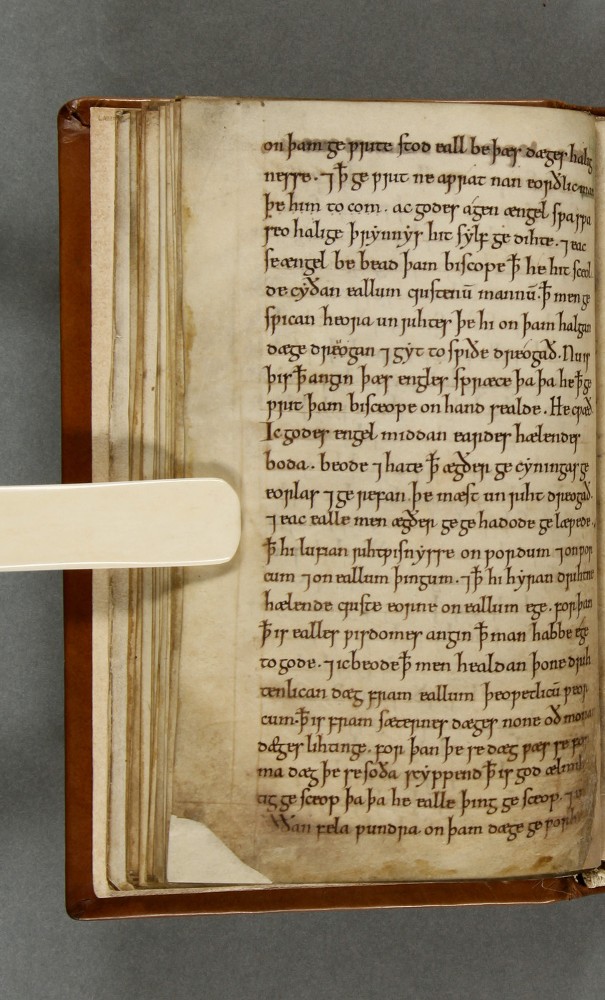 on þam ge ƿrite stod eall be þæs dæges halig
nesse. ⁊ ꝥ ge ƿrit ne aƿrat nan eorðlic man
þe him to com. ac godes ágen ængel sƿa sƿa
seo halige þrẏnnẏs hit sẏlf ge dihte. ⁊ eac
se ængel be bead þam biscope ꝥ he hit sceol
de cẏðan eallum cristenū mannū. ꝥ men ge
sƿican heora unrihtes þe hi on þam halgan
dæge dreogan ⁊ gẏt to sƿiðe dreogað. Nu is
þis ꝥ angin þæs engles sprǽce þa þa he ꝥ ge
ƿrit þam bisceope on hand sealde. He cƿæð
Ic godes engel middan eardes hælendes
boda. beode ⁊ hate ꝥ ægðer ge cẏningas ge
eorlas ⁊ ge refan. þe mæst unriht dreogað.
⁊ eac ealle men ægðer ge ge hadode ge læƿede.
ꝥ hi lufian rihtƿisnẏsse on ƿordum ⁊ on ƿeor
cum ⁊ on eallum þingum. ⁊ ꝥ hi hẏran drihtne
hælende criste eorne on eallum ege. for þan
ꝥ is ealles ƿisdomes angin ꝥ man habbe ege
to gode. ⁊ ic beode ꝥ men healdan þone drih
tenlican dæg fram eallum þeoƿetlicū ƿeor
cum. ꝥ is fram sæternes dæges none oð monan
dæges lihtinge. for þan þe se dæg ƿæs se for
ma dæg þe se soða scẏppend ꝥ is god ælmih
tig ge sceop þa þa he ealle þing ge sceop. ⁊
fela ƿundra on þam dæge ge